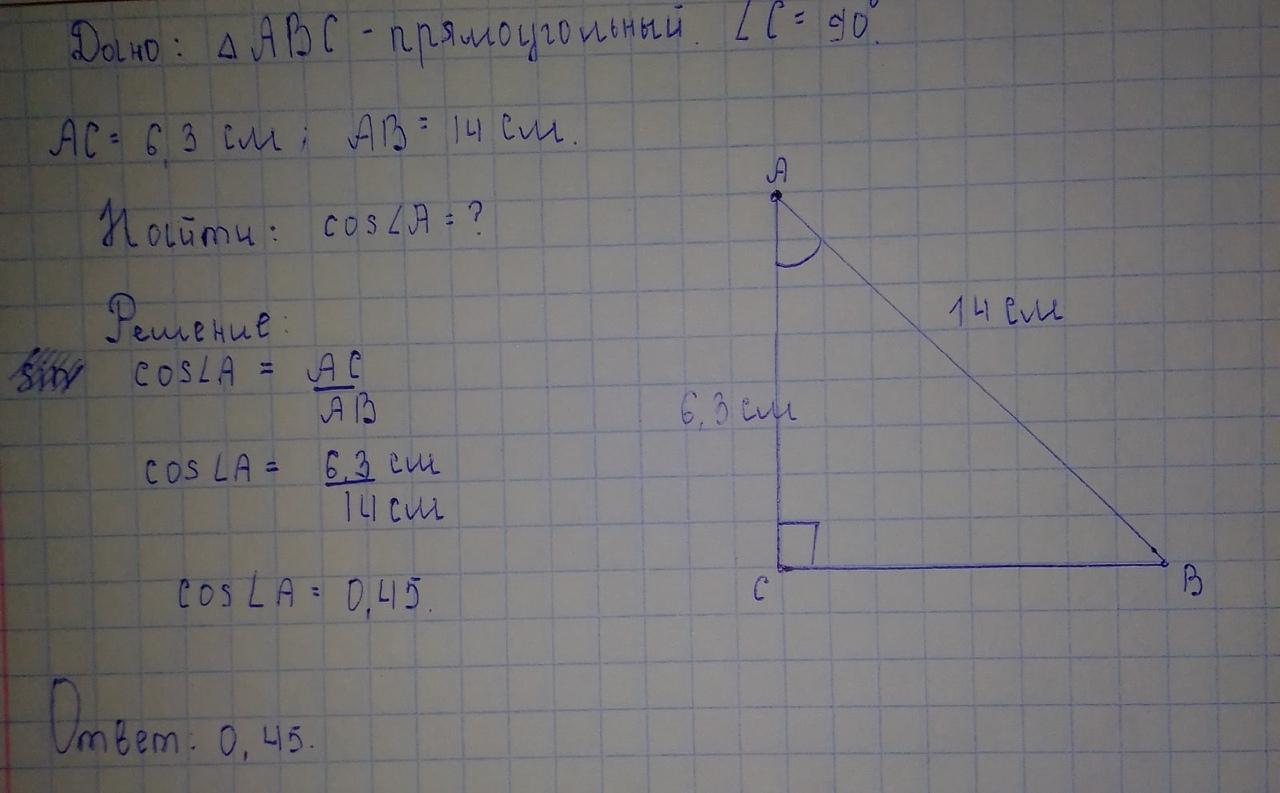 Дано: △ABC - прямоугольный. ∠C = 90°.
AC = 6,3 см; AB = 14 см.
Найти: cos∠A = ?
Решение:
cos∠A = AC
AB
cos∠A = 6,3 см
14 см
cos∠A = 0,45.
Ответ: 0,45.
A
14 см
6,3 см
C
B